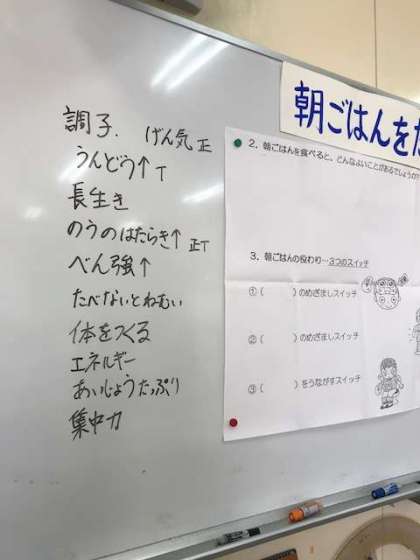 朝ごはんをた
調子. げん気 正
うんどう↑ T
長生き
のうのはたらき↑ 正T
べん強↑
たべないとねむい
体をつくる
エネルギー
あいじょうたっぷり
集中力
2. 朝ごはんを食べると、どんなよいことがあるでしょうか?
3. 朝ごはんの役わり…3つのスイッチ
①( )のめざましスイッチ
②( )のめざましスイッチ
③( )をうながすスイッチ